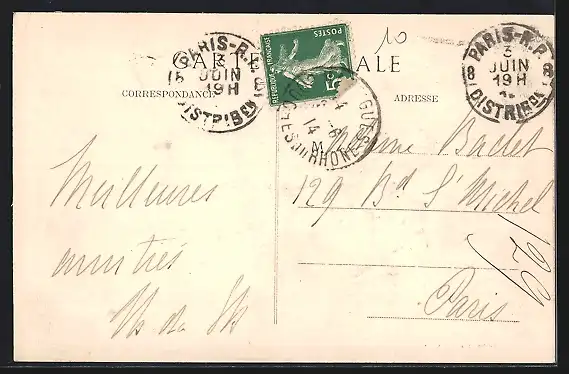 CARTE POSTALE
CORRESPONDANCE
ADRESSE
POSTES
REPUBLIQUE FRANÇAISE
5c
10
PARIS-R.P.
JUIN
19H
DISTRIBON
PARIS-R.P.
8 3 8
JUIN
19H
DISTRIBON
4 -6
14
BES DU RHONE
Meilleures
amitiés
Madame
129 Bd St Michel
Paris